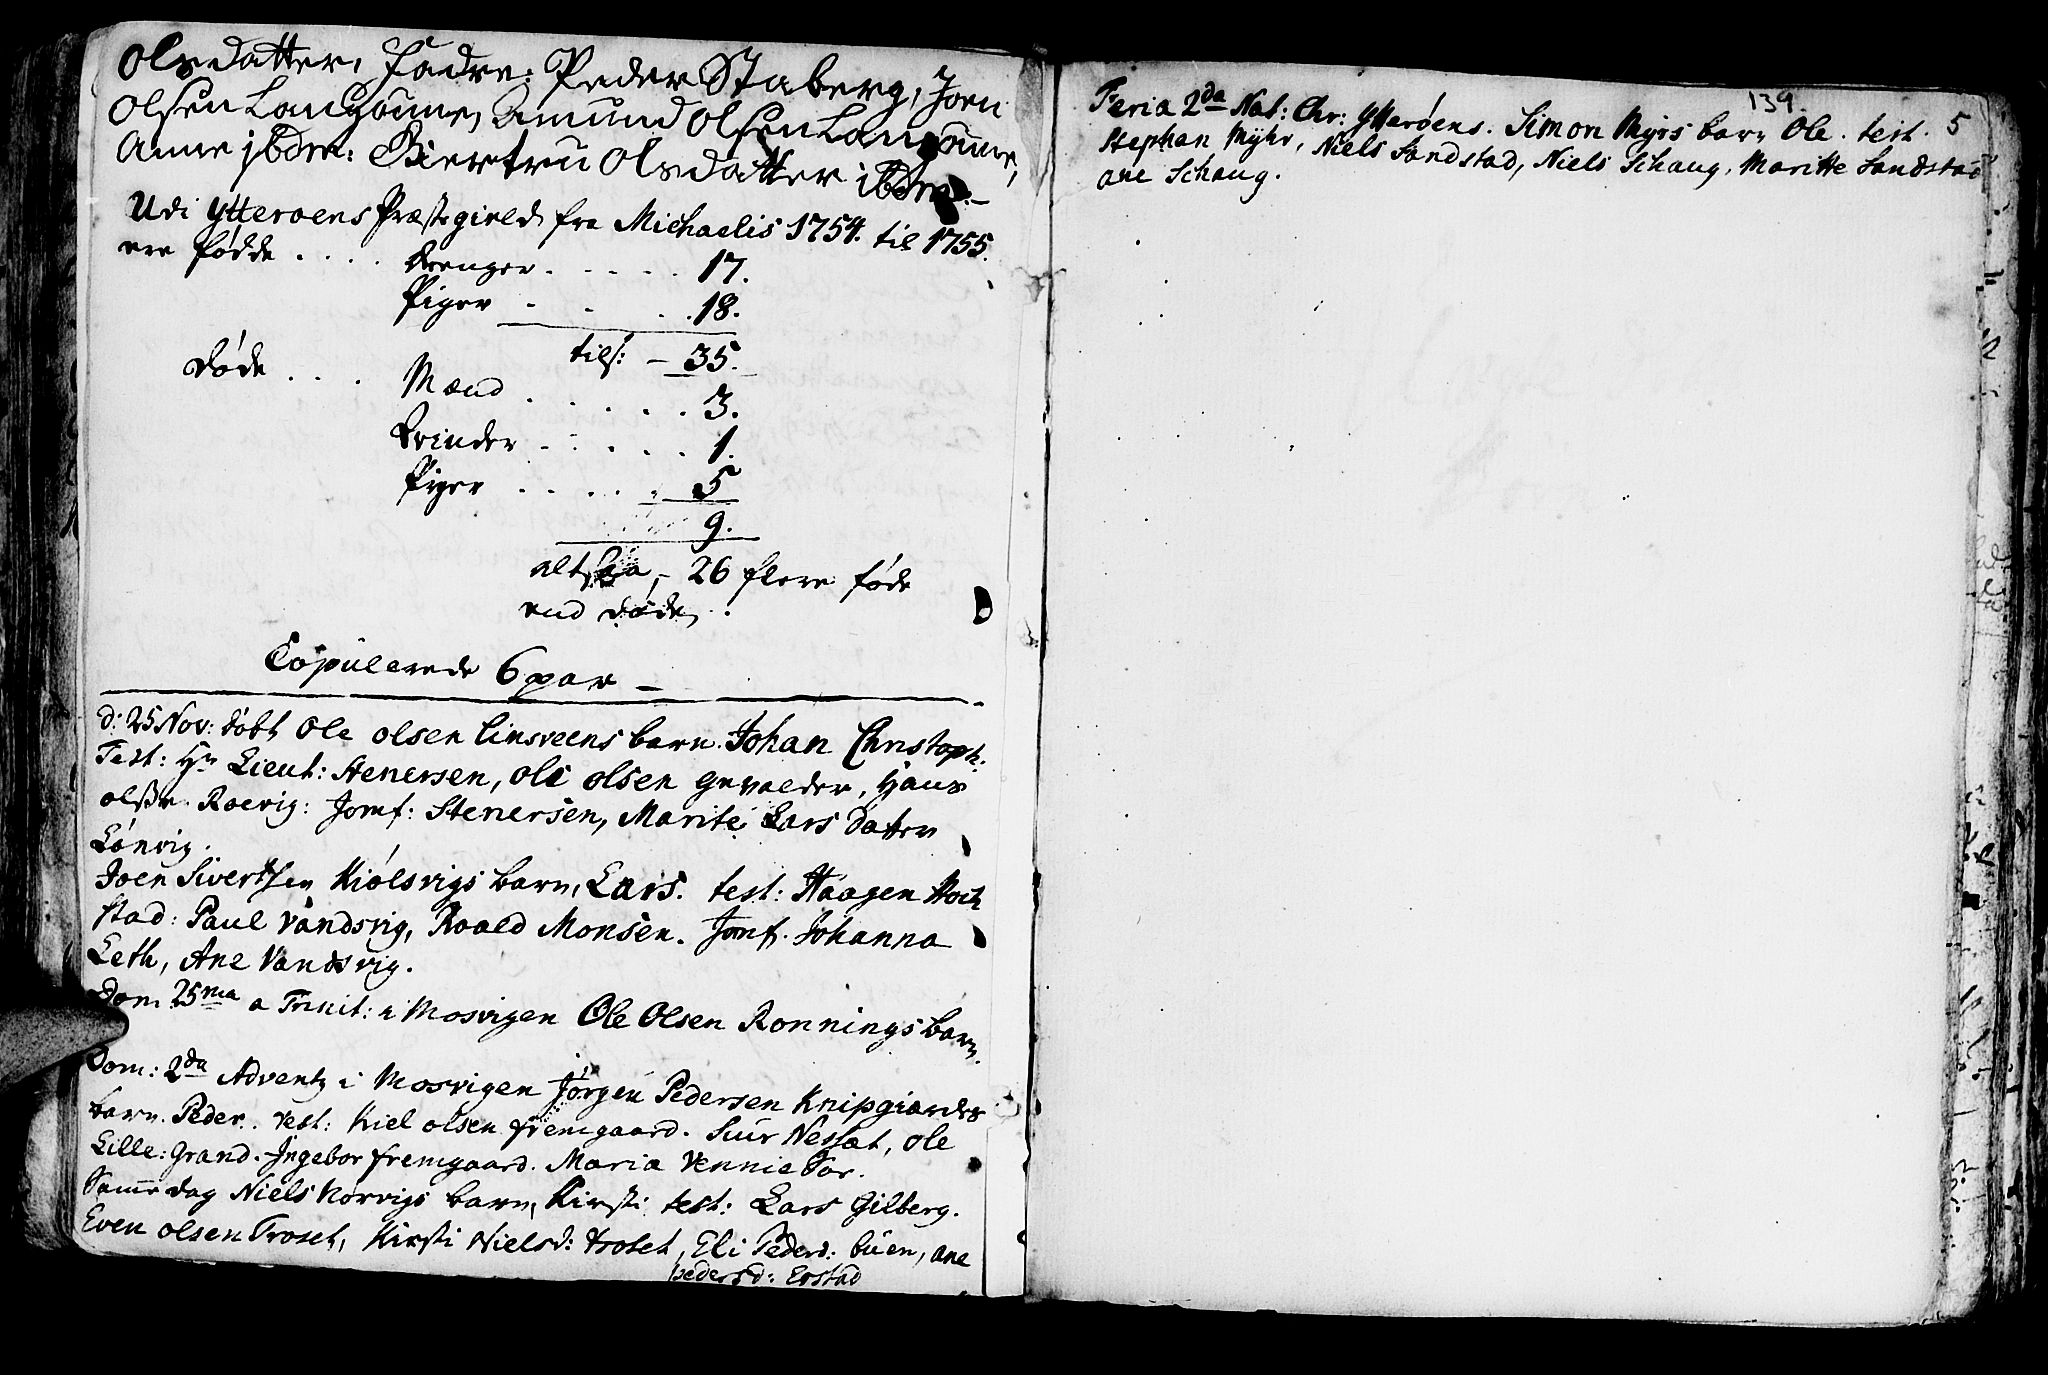 Olsdatter, Fadre: Peder Staberg, Joen
Olsen Langoune, Amund Olsen Langoune,
Anne ibdm: Giertru Olsdatter ibdm.
Udi Ytteroens Præstegield fra Michaelis 1754. til 1755.
ere fødde . . . . Drenger . . . . . 17.
Piger . . . . 18.
tils: – 35.
Døde . . . Mænd . . . . . 3.
Qvinder . . . . . 1.
Piger . . . . . 5
9.
altsaa, – 26 flere føde
end døde.
Copulerede 6 par –
d: 25 Nov: døbt Ole Olsen Linsveens barn. Johan Christoph:
Test: Hr Lieut: Stenersen, Ole Olsen Gevalder, Hans
Olssen Roevig: Jomf: Stenersen, Marite Lars Datter
Lönvig.
Joen Sivertsen Kiölsvigs barn, Lars. test: Haagen Hoch
stad: Paul Vandsvig, Roald Monsen. Jomf. Johanna
Leth, Ane Vandsvig.
Dom 25ma a Trinit: i Mosvigen Ole Olsen Ronnings barn.
Dom: 2da Advent i Mosvigen Jörgen Pedersen Knipgiærdes
barn. Peder. Test: Kiel Olsen fremgaard. Siur Nessæt, Ole
Lille: Grand. Ingebor fremgaard. Maria Vennie Sor.
Samme dag Niels Norvigs barn, Kirsti test: Lars Gilberg.
Even Olsen Troset, Kirsti Nielsd: Troset, Eli Pedersd: Buen, ane
Pedersd: Erstad
139.
Feria 2da Nat: Chr: Ytterøens. Simon Myrs barn Ole. test. 5
Stephan Myhr, Niels Sandstad, Niels Schaug, Maritte Sandstad
ane Schaug.